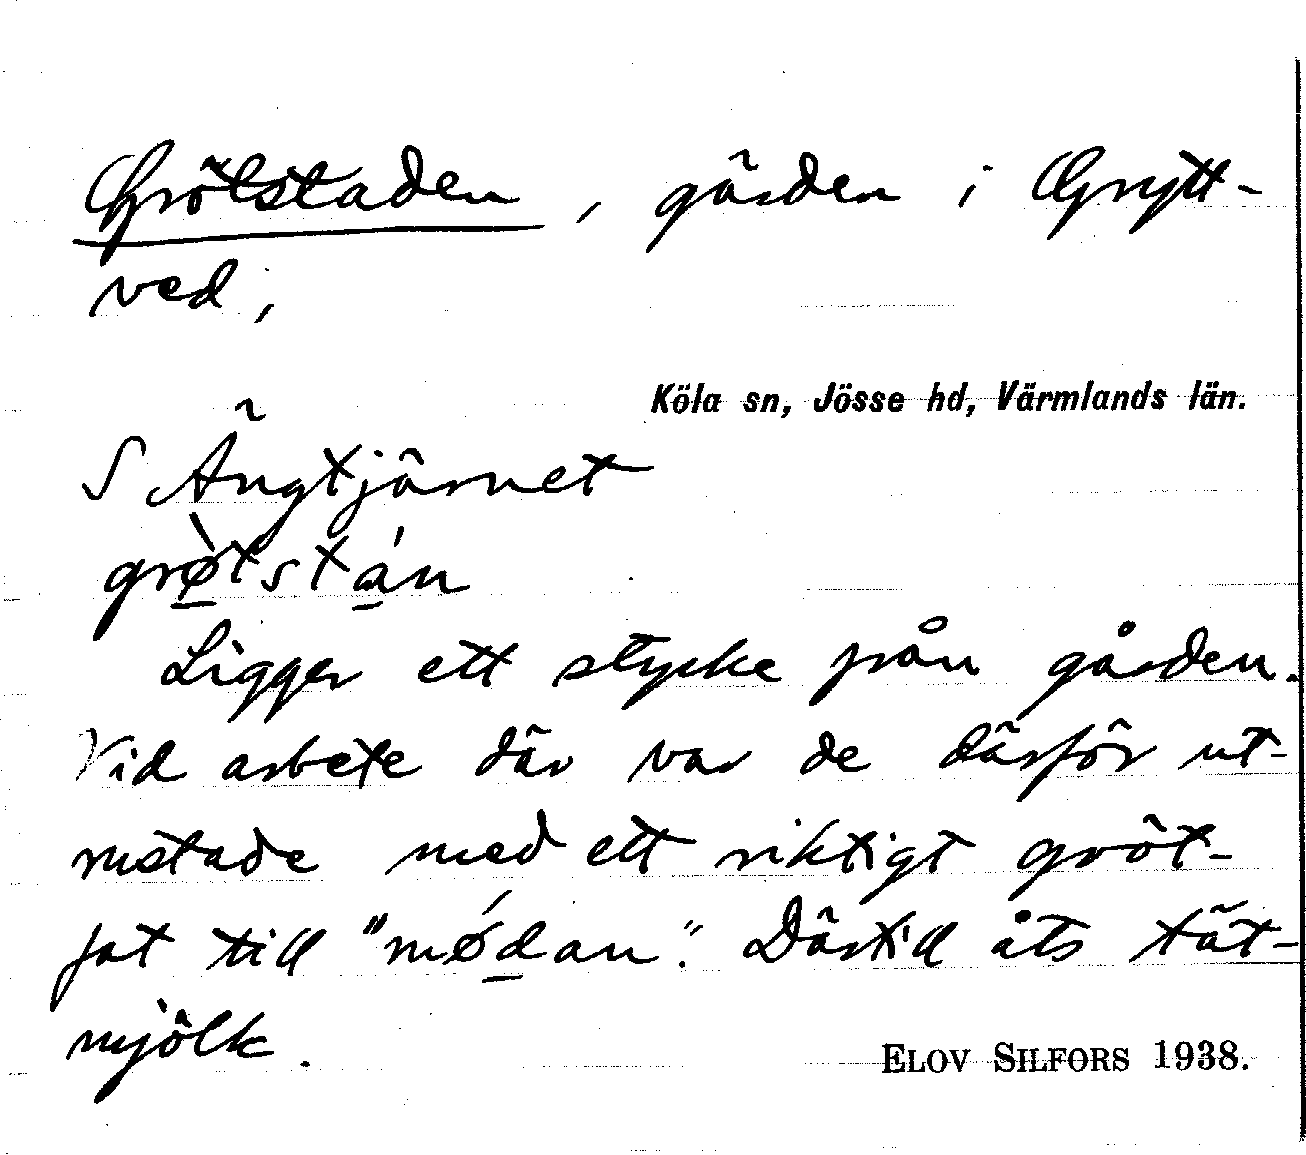 Grötstaden, gärden i Grytt-
ved,
Köla sn, Jösse hd, Värmlands län.
S Ängtjärnet
grø̀tstán
Ligger ett stycke från gården.
Vid arbete där var de därför ut-
rustade med ett riktigt gröt-
fat till "mǿdan". Därtill åts tät-
mjölk.
ELOV SILFORS 1938.